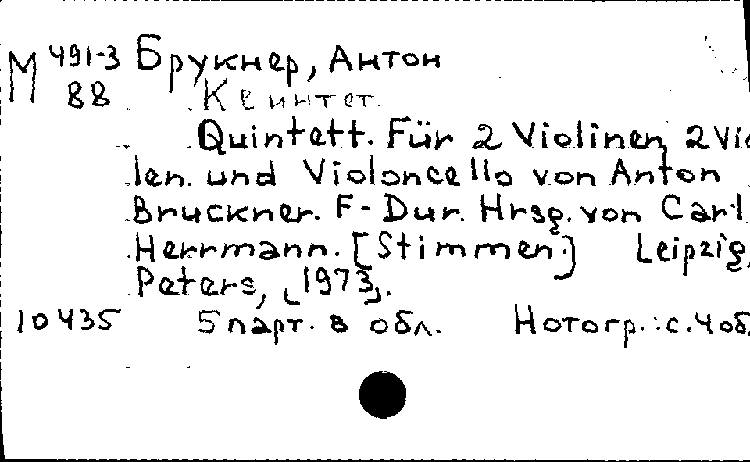 М 491-3 Брукнер, Антон
88 Квинтет.
Quintett. Für 2 Violinen, 2 Vio
len. und Violoncello von Anton
Bruckner. F-Dur. Hrsg. von Carl
Herrmann. [Stimmen.] Leipzig,
Peters, [1973].
10435 5 парт. в обл. Нотогр.: с. 4 об